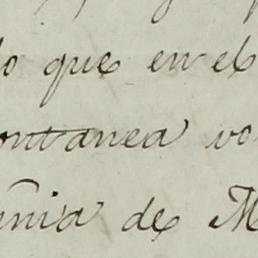 lo que en el
ontanea vo
enia de M